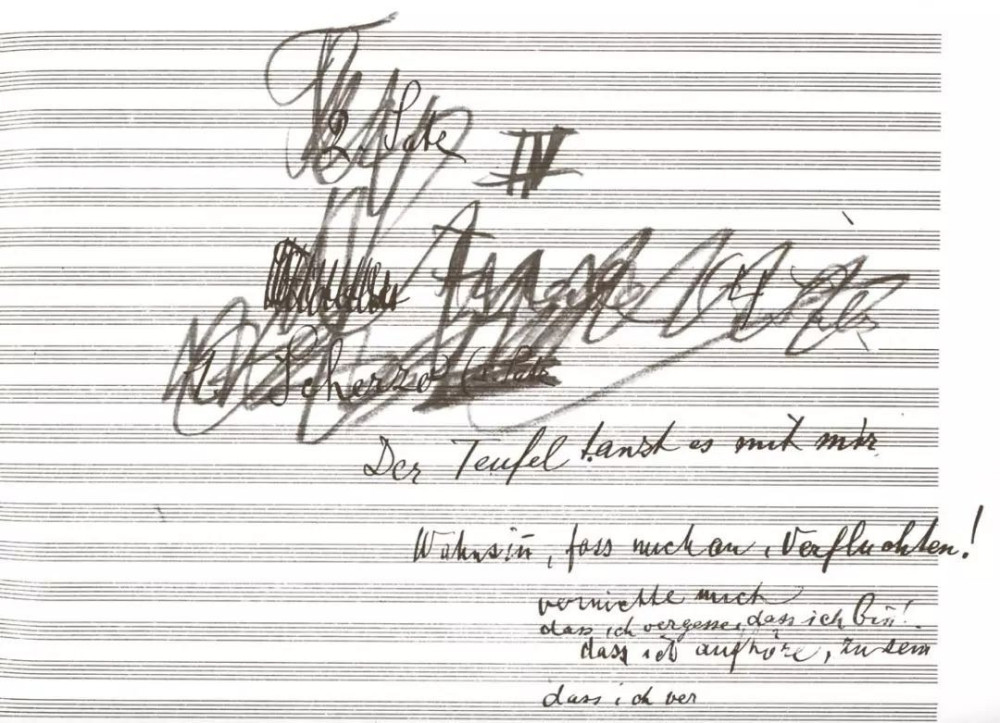 2. Satz
IV
1. Scherzo (
Der Teufel tanzt es mit mir
Wahnsin, fass mich an, Verfluchten!
vernichte mich
dass ich vergesse, dass ich bin!
dass ich aufhöre, zu sein
dass ich ver